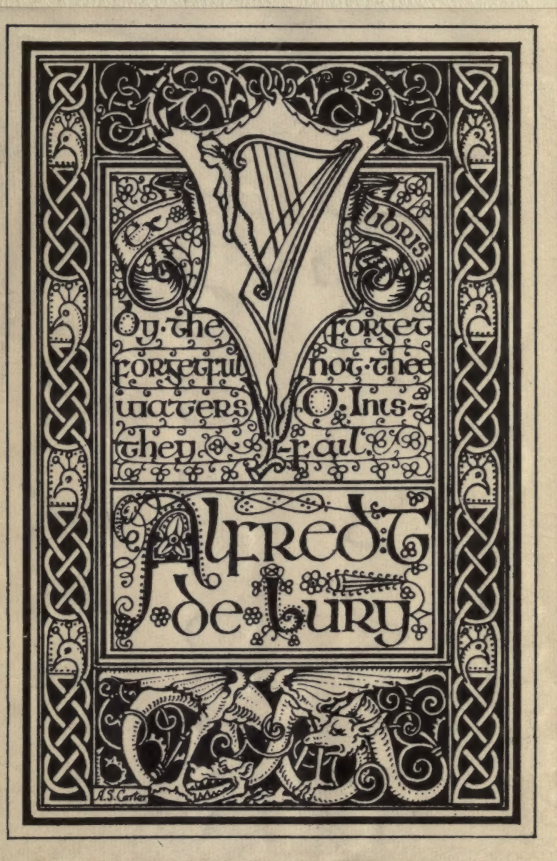 Ex libris
By·the
forgetful
waters
they
forget
not·thee
O·Inis-
-fail.
Alfred:T
·de·Lury
A.S. Carter